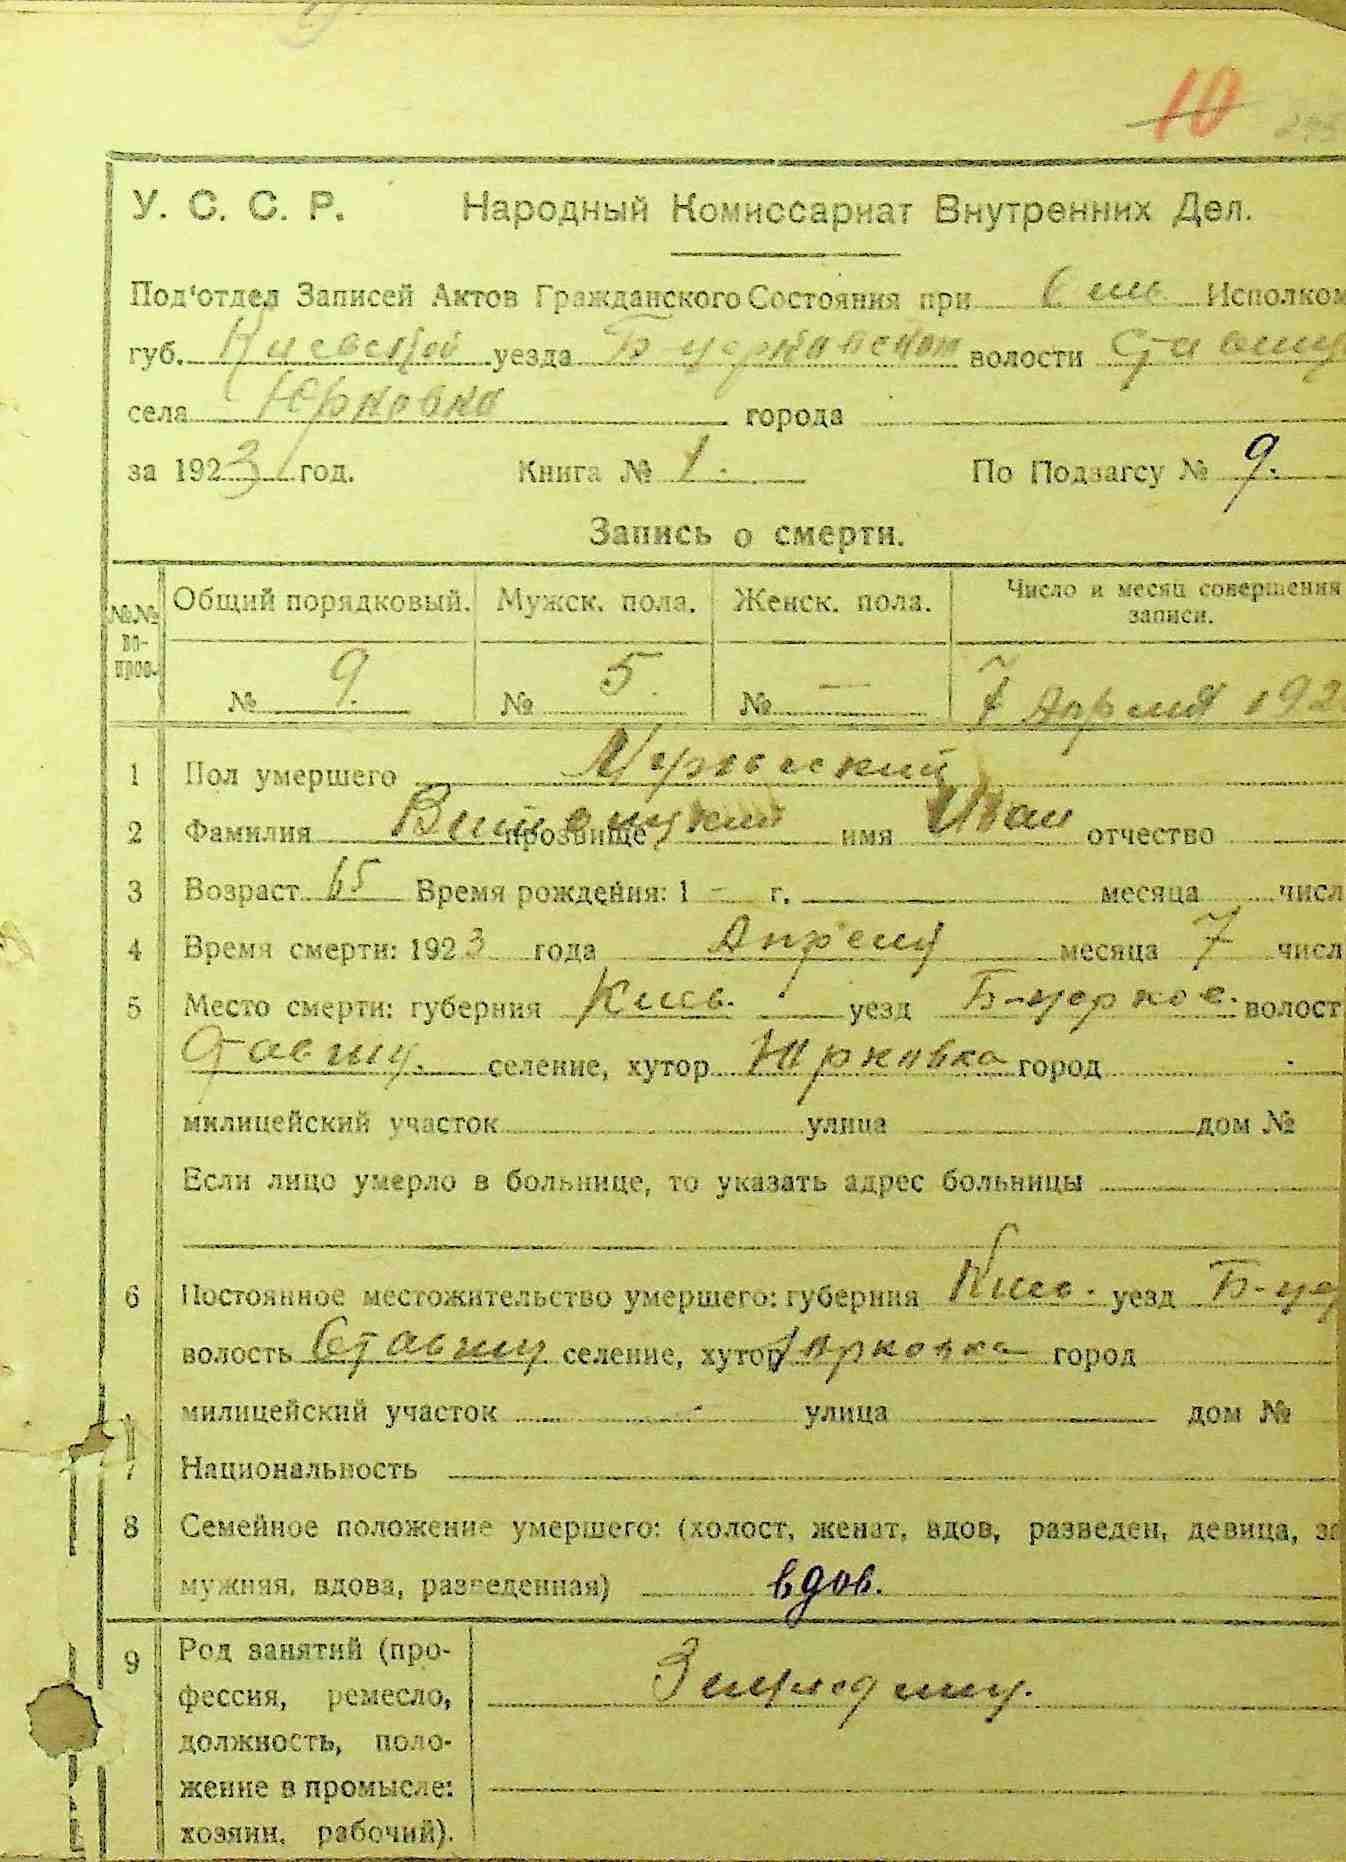 10
У. С. С. Р. Народный Комиссариат Внутренних Дел.
Под'отдел Записей Актов Гражданского Состояния при Исполком
губ. Киевской уезда Б-церковском волости Ставищ
села Юрковка города
за 1923 год. Книга № 1. По Подзагсу № 9.
Запись о смерти.
№№ во- прос- Общий порядковый. Мужск. пола. Женск. пола. Число и месяц совершения записи.
№ 9. № 5. № — 7 Апреля 192
1 Пол умершего Мужеский
2 Фамилия прозвище имя Иван отчество
3 Возраст 65 Время рождения: 1 - г. месяца числ
4 Время смерти: 1923 года Апреля месяца 7 числ
5 Место смерти: губерния Киев. уезд Б-церков. волост
Ставищ. селение, хутор Юрковка город
милицейский участок улица дом №
Если лицо умерло в больнице, то указать адрес больницы
6 Постоянное местожительство умершего: губерния Киев. уезд Б-цер
волость Ставищ селение, хутор Юрковка город
милицейский участок улица дом №
7 Национальность
8 Семейное положение умершего: (холост, женат, вдов, разведен, девица, за
мужняя, вдова, разведенная) вдов.
9 Род занятий (про-
фессия, ремесло,
должность, поло-
жение в промысле:
хозяин, рабочий).